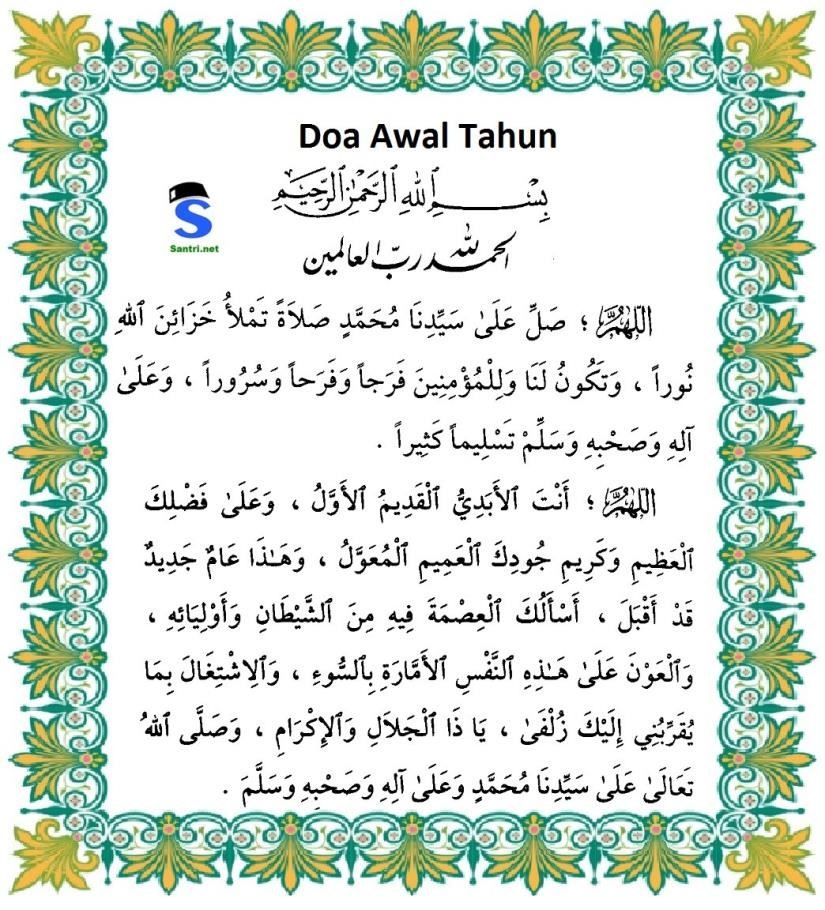 Doa Awal Tahun
بِسْمِ ٱللهِ ٱلرَّحْمٰنِ ٱلرَّحِيْمِ
S
Santri.net
الحمد لله رب العالمين
اَللّٰهُمَّ ؛ صَلِّ عَلَىٰ سَيِّدِنَا مُحَمَّدٍ صَلَاةً تَمْلَأُ خَزَائِنَ ٱللهِ
نُوراً ، وَتَكُونُ لَنَا وَلِلْمُؤْمِنِينَ فَرَجاً وَفَرَحاً وَسُرُوراً ، وَعَلَىٰ
آلِهِ وَصَحْبِهِ وَسَلِّمْ تَسْلِيماً كَثِيراً .
اَللّٰهُمَّ ؛ أَنْتَ ٱلْأَبَدِيُّ ٱلْقَدِيمُ ٱلْأَوَّلُ ، وَعَلَىٰ فَضْلِكَ
ٱلْعَظِيمِ وَكَرِيمِ جُودِكَ ٱلْعَمِيمِ ٱلْمُعَوَّلُ ، وَهَـٰذَا عَامٌ جَدِيدٌ
قَدْ أَقْبَلَ ، أَسْأَلُكَ ٱلْعِصْمَةَ فِيهِ مِنَ ٱلشَّيْطَانِ وَأَوْلِيَائِهِ ،
وَٱلْعَوْنَ عَلَىٰ هَـٰذِهِ ٱلنَّفْسِ ٱلْأَمَّارَةِ بِٱلسُّوءِ ، وَٱلِاشْتِغَالَ بِمَا
يُقَرِّبُنِي إِلَيْكَ زُلْفَىٰ ، يَا ذَا ٱلْجَلَالِ وَٱلْإِكْرَامِ ، وَصَلَّى ٱللهُ
تَعَالَىٰ عَلَىٰ سَيِّدِنَا مُحَمَّدٍ وَعَلَىٰ آلِهِ وَصَحْبِهِ وَسَلَّمَ .